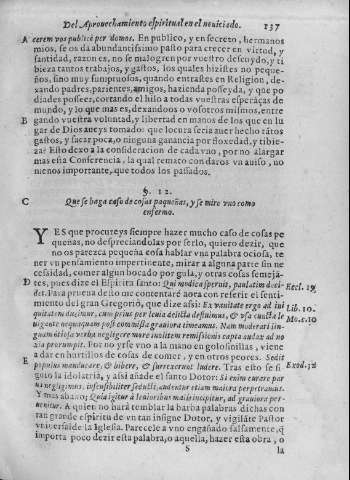 Del Aprouechamiento espiritual en el nouiciado. 137
A cerem vos publicè per domos. En publico, y en secreto, hermanos
mios, se os da abundantissimo pasto para crecer en virtud, y
santidad, razon es, no se malogren por vuestro descuydo, y ti
bieza tantos trabajos, y gastos, los quales hizistes no peque-
ños, sino muy sumptuosos, quando entrastes en Religion, de-
xando padres, parientes, amigos, hazienda posseyda, y que po
diades posseer, cortando el hilo a todas vuestras esperãças de
mundo, y lo que mas es, dexandoos o vosotros mismos, entre
B gando vuestra voluntad, y libertad en manos de los que en lu
gar de Dios aueys tomado: que locura seria auer hecho tãtos
gastos, y sacar poca, o ninguna ganancia por floxedad, y tibie-
za? Esto dexo a la consideracion de cada vno, por no alargar
mas esta Conferencia, la qual remato con daros vn auiso, no
menos importante, que todos los passados.
§. 12.
C Que se haga caso de cosas pequeñas, y se mire vno como
enfermo.
Y ES que procureys siempre hazer mucho caso de cosas pe
queñas, no despreciandolas por serlo, quiero dezir, que
no os parezca pequeña cosa hablar vna palabra ociosa, te
ner vn pensamiento impertinente, mirar a alguna parte sin ne
cessidad, comer algun bocado por gula, y otras cosas semejã-
D tes, pues dize el Espiritu santo: Qui modica spernit, paulatim deci- Eccl. 19
det. Para prueua desto me contentarè aora con referir el senti-
miento del gran Gregorio, que dize assi: Lib. 10.
Mo. c. 10
urgente nequaquam post commissa grauiora timeamus. Nam moderari lin-
E guam otiosa verba negligere
xia prorumpit. Por no yrse vno a la mano en golosinillas, viene
a dar en hurtillos de cosas de comer, y en otros peores. Sedit
populus manducare, & bibere, & surrexerunt ludere. Tras esto se si Exod. 32
guio la idolatria, y assi añade el santo Dotor: Si enim curare par
ua negligimus, insensibiliter seducti, audenter etiam maiora perpetramus.
Y mas abaxo: Quia igitur à leuioribus malis incipitur, ad grauiora per-
uenitur. A quien no harà temblar la barba palabras dichas con
tan grande espiritu de vn tan insigne Dotor, y vigilãte Pastor
vniuersal de la Iglesia. Parecele a vno engañado falsamente, q̃
importa poco dezir esta palabra, o aquella, hazer esta obra, o
S la